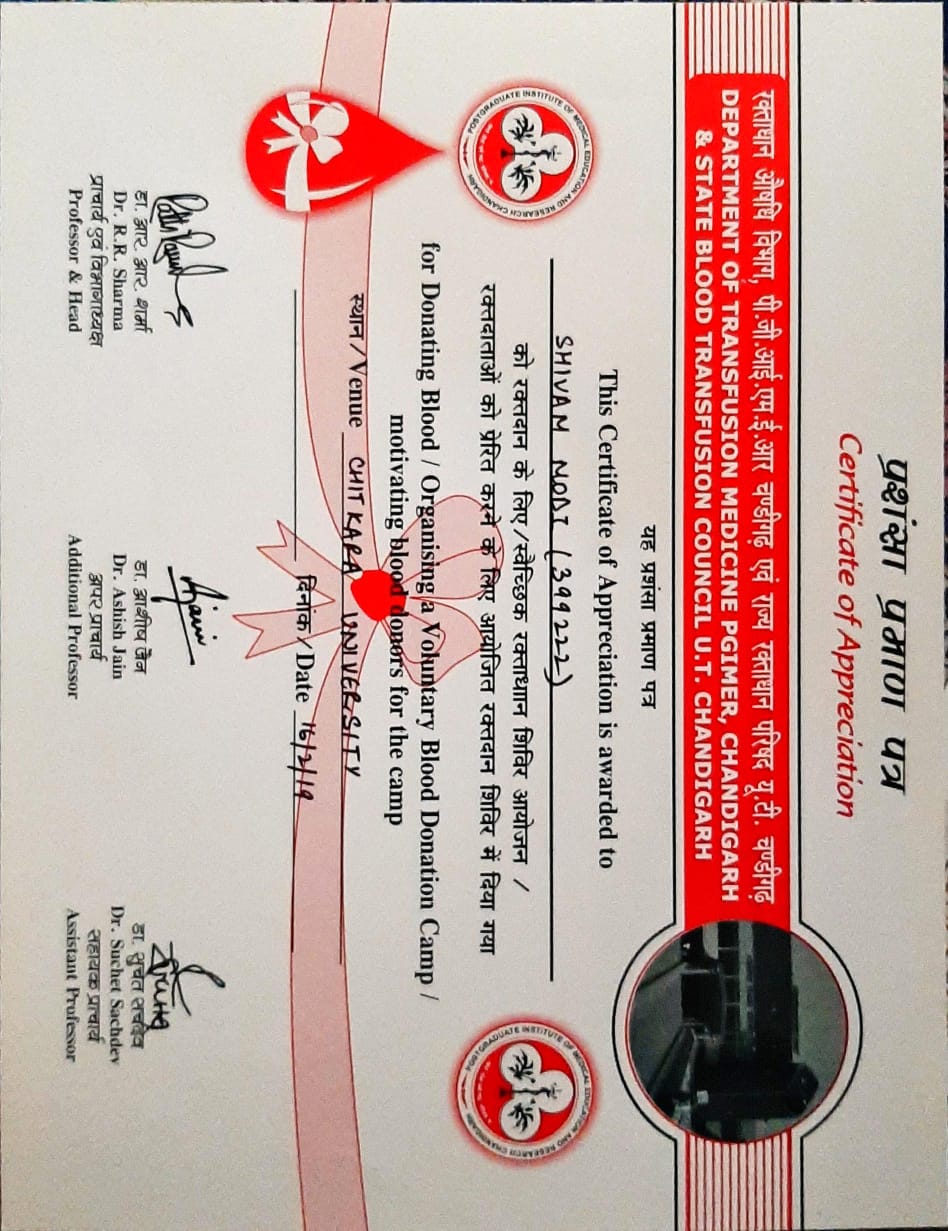 प्रशंसा प्रमाण पत्र
Certificate of Appreciation
रक्ताधान औषधि विभाग, पी.जी.आई.एम.ई.आर चण्डीगढ़ एवं राज्य रक्ताधान परिषद यू.टी. चण्डीगढ़
DEPARTMENT OF TRANSFUSION MEDICINE PGIMER, CHANDIGARH
& STATE BLOOD TRANSFUSION COUNCIL U.T. CHANDIGARH
यह प्रशंसा प्रमाण पत्र
This Certificate of Appreciation is awarded to
POSTGRADUATE INSTITUTE OF MEDICAL EDUCATION AND RESEARCH CHANDIGARH
POSTGRADUATE INSTITUTE OF MEDICAL EDUCATION AND RESEARCH CHANDIGARH
SHIVAM MODI (399222)
को रक्तदान के लिए/स्वैच्छिक रक्ताधान शिविर आयोजन /
रक्तदाताओं को प्रेरित करने के लिए आयोजित रक्तदान शिविर में दिया गया
for Donating Blood / Organising a Voluntary Blood Donation Camp /
motivating blood donors for the camp
स्थान/Venue CHITKARA UNIVERSITY
दिनांक/Date 16/2/19
डा. आर. आर. शर्मा
Dr. R.R. Sharma
प्राचार्य एवं विभागाध्यक्ष
Professor & Head
डा. आशीष जैन
Dr. Ashish Jain
अपर प्राचार्य
Additional Professor
डा. सुचेत सचदेव
Dr. Suchet Sachdev
सहायक प्राचार्य
Assistant Professor